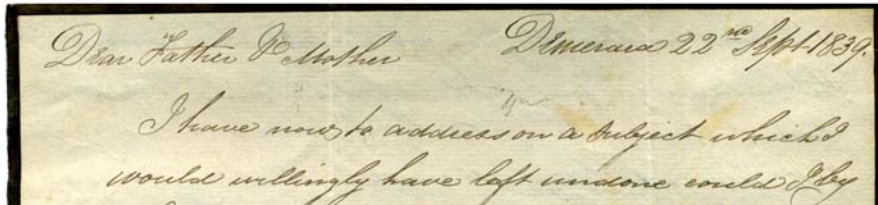 Dear Father & Mother Demerara 22nd Sept 1839.
you
I have now to address on a subject which I
would willingly have left undone could I by